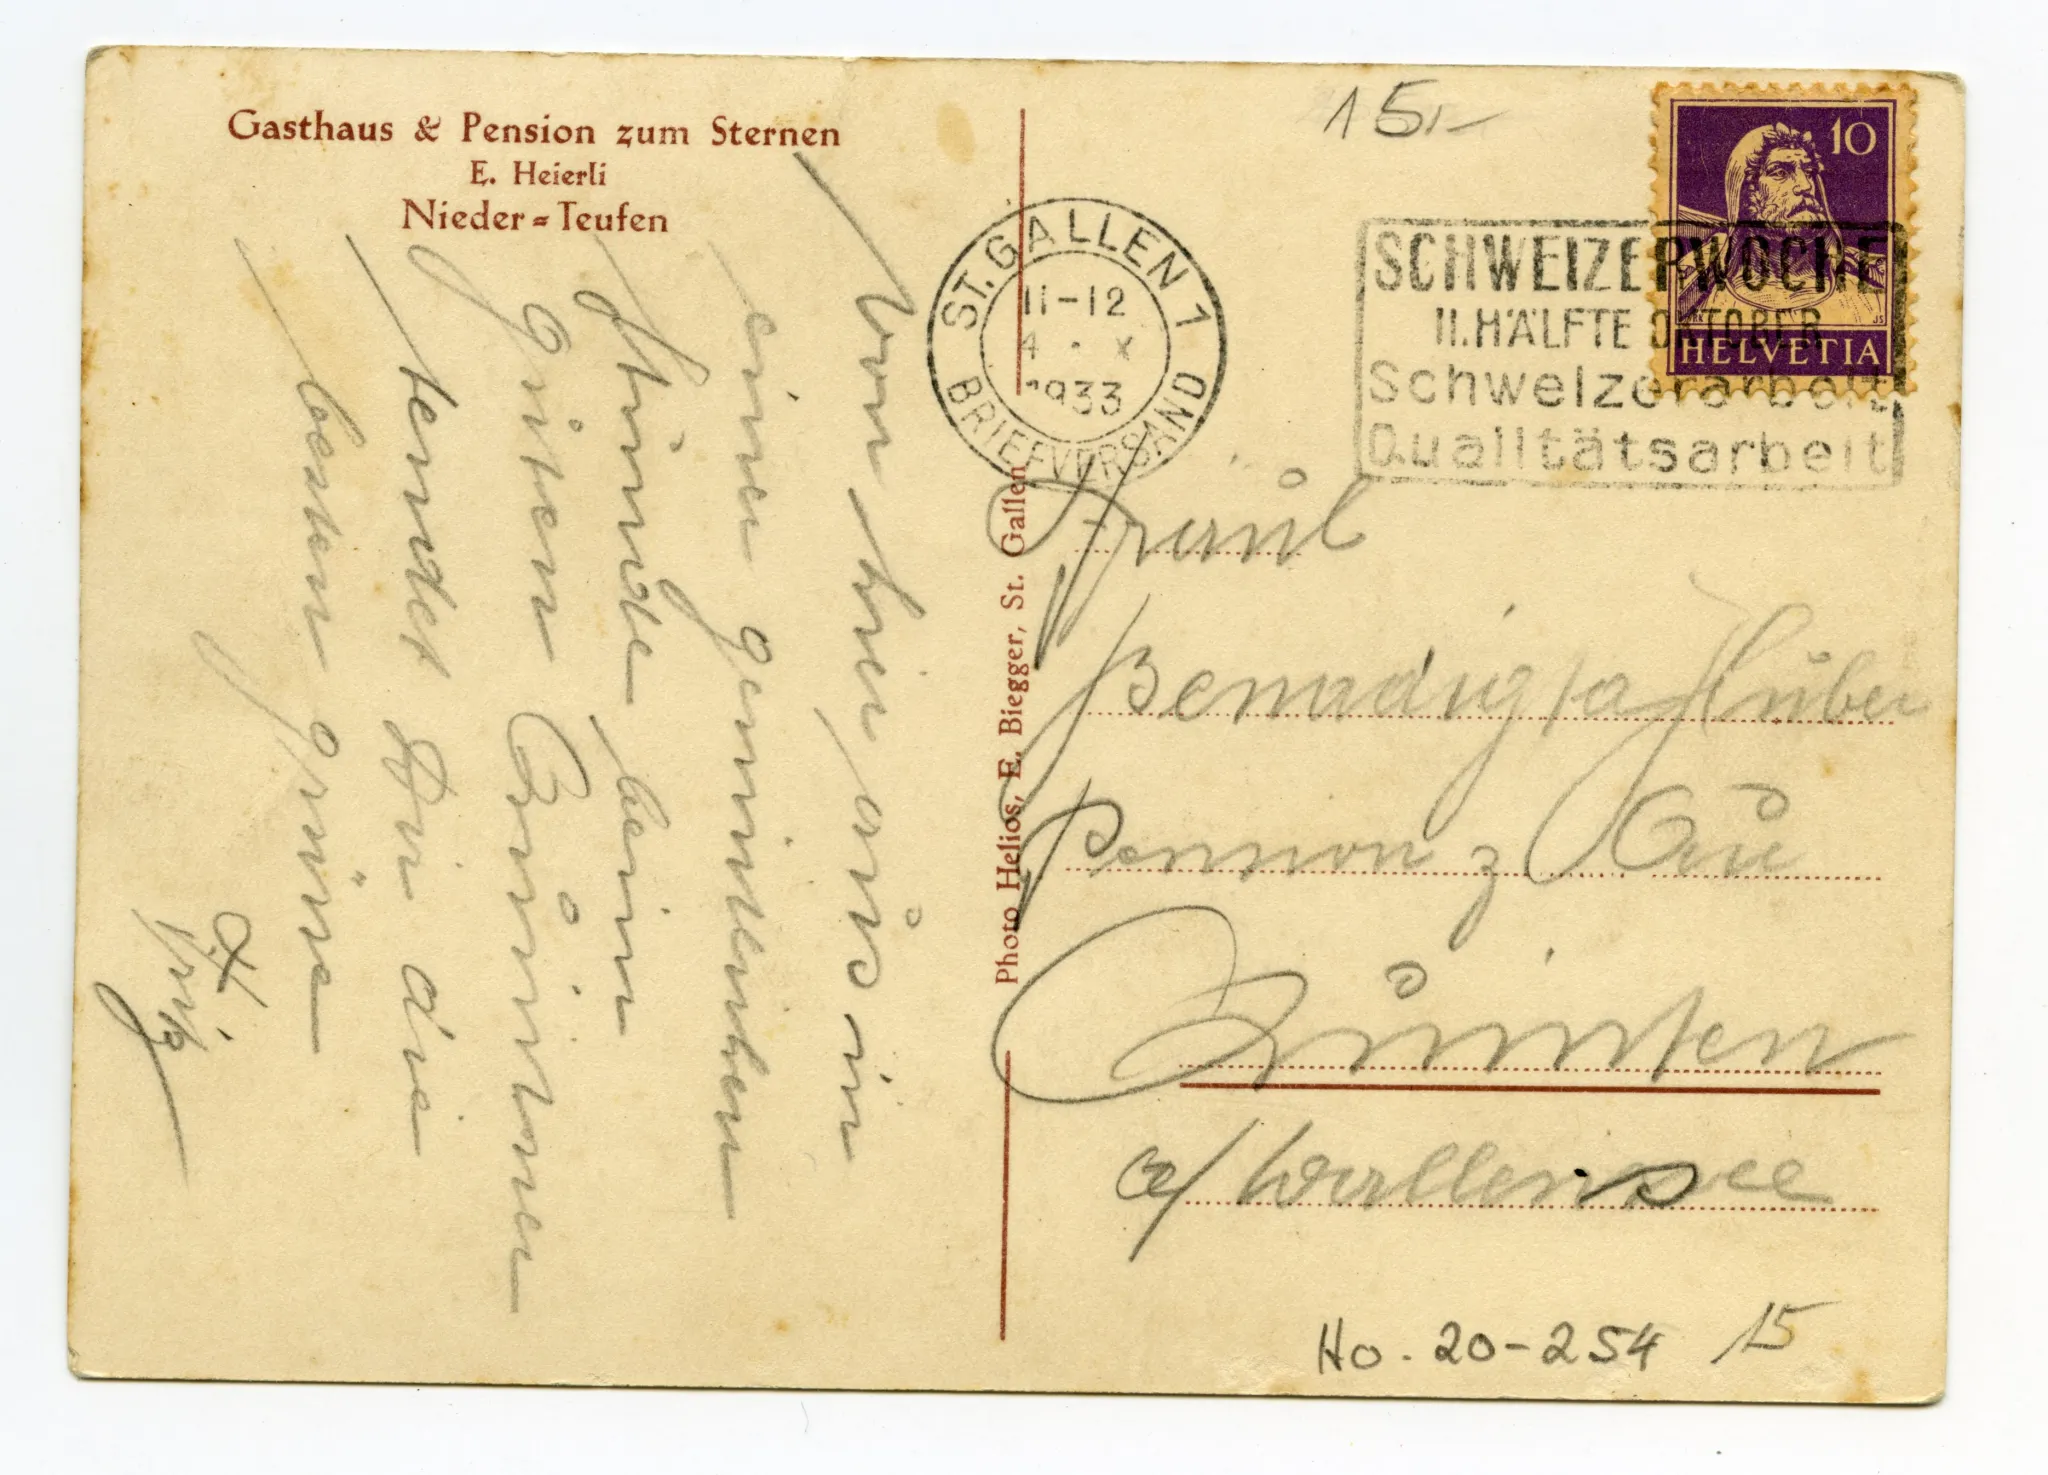 Gasthaus & Pension zum Sternen
E. Heierli
Nieder=Teufen
Von hier aus in
einer gemütlichen
Stunde beim
guten
sendet Dir die
besten Grüsse
Photo Helios, E. Biegger, St. Gallen
ST. GALLEN 1
11-12
4 · X
1933
BRIEFVERSAND
15.-
10
HELVETIA
SCHWEIZERWOCHE
II. HÄLFTE OKTOBER
Schweizerarbeit
Qualitätsarbeit
Fräul
Huber
Pension z Au
a/ Wallensee
Ho. 20-254
15